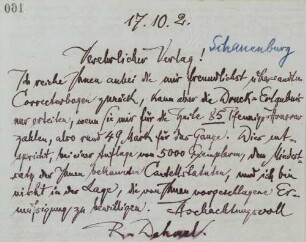 001
17.10.2.
Schauenburg
Verehrlicher Verlag!
Ich reiche Ihnen anbei die mir freundlichst übersandten
Correcturbogen zurück, kann aber die Druck-Erlaubnis
nur erteilen, wenn Sie mir für die Zeile 35 Pfennige Honorar
zahlen, also rund 49 Mark für das Ganze. Dies ent-
spricht, bei einer Auflage von 5000 Exemplaren, dem Mindest-
satz der Ihnen bekannten Cartell-Statuten, und ich bin
nicht in der Lage, die von Ihnen vorgeschlagene Er-
mässigung zu bewilligen. Hochachtungsvoll
R. Dehmel.